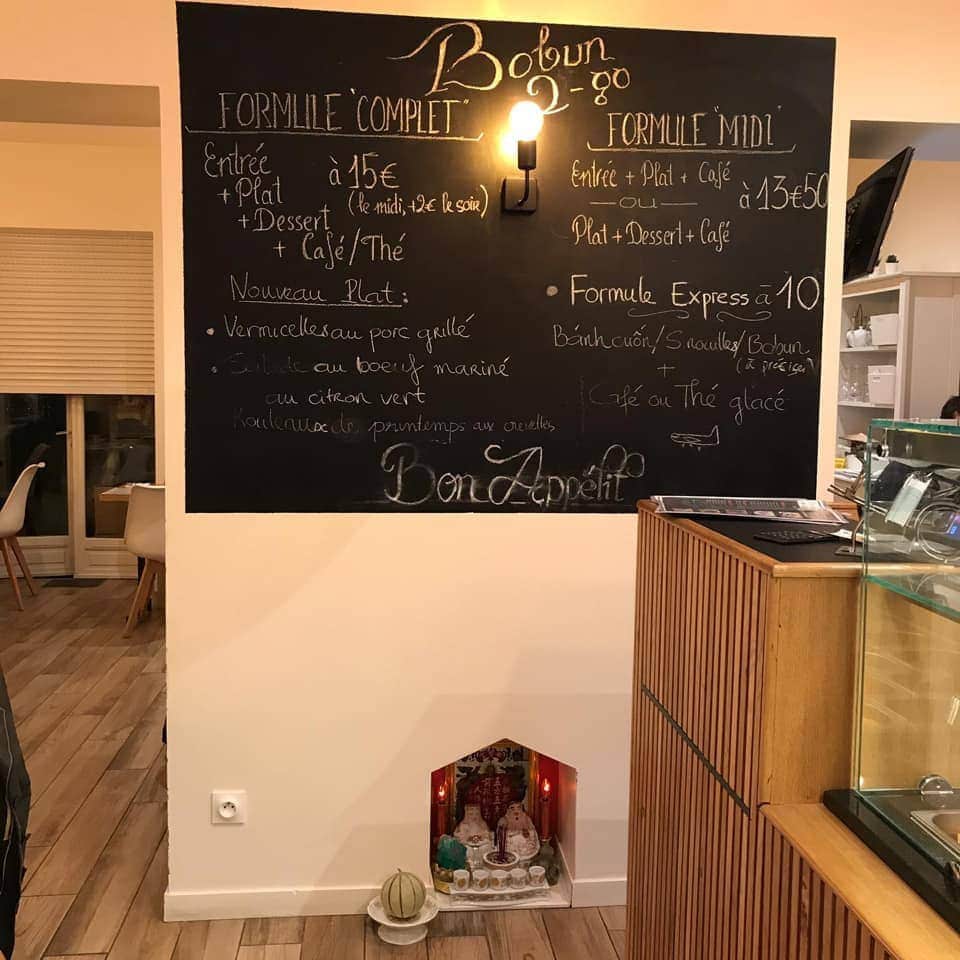 Bobun
2-go
FORMULE "COMPLET"
Entrée
+ Plat
+ Dessert
+ Café/Thé
à 15€
(le midi, +2€ le soir)
Nouveau Plat :
• Vermicelles au porc grillé
• Salade au boeuf mariné
au citron vert
Rouleaux de printemps aux crevettes
FORMULE "MIDI"
Entrée + Plat + Café
— OU —
Plat + Dessert + Café
à 13€50
• Formule Express à 10
Bánh cuốn / S nouilles / Bobun
(à préciser)
+
Café ou Thé glacé
Bon Appétit